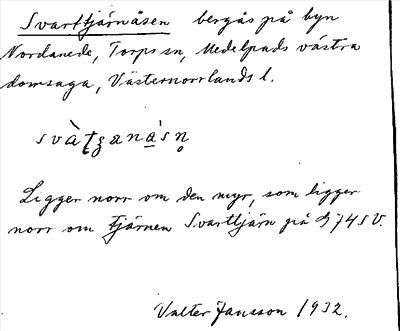 Svarttjärnåsen bergås på byn
Nordanede, Torps sn, Medelpads västra
domsaga, Västernorrlands l.
Ligger norr om den myr, som ligger
norr om tjärnen Svarttjärn på G 74 S V.
Valter Jansson 1932.